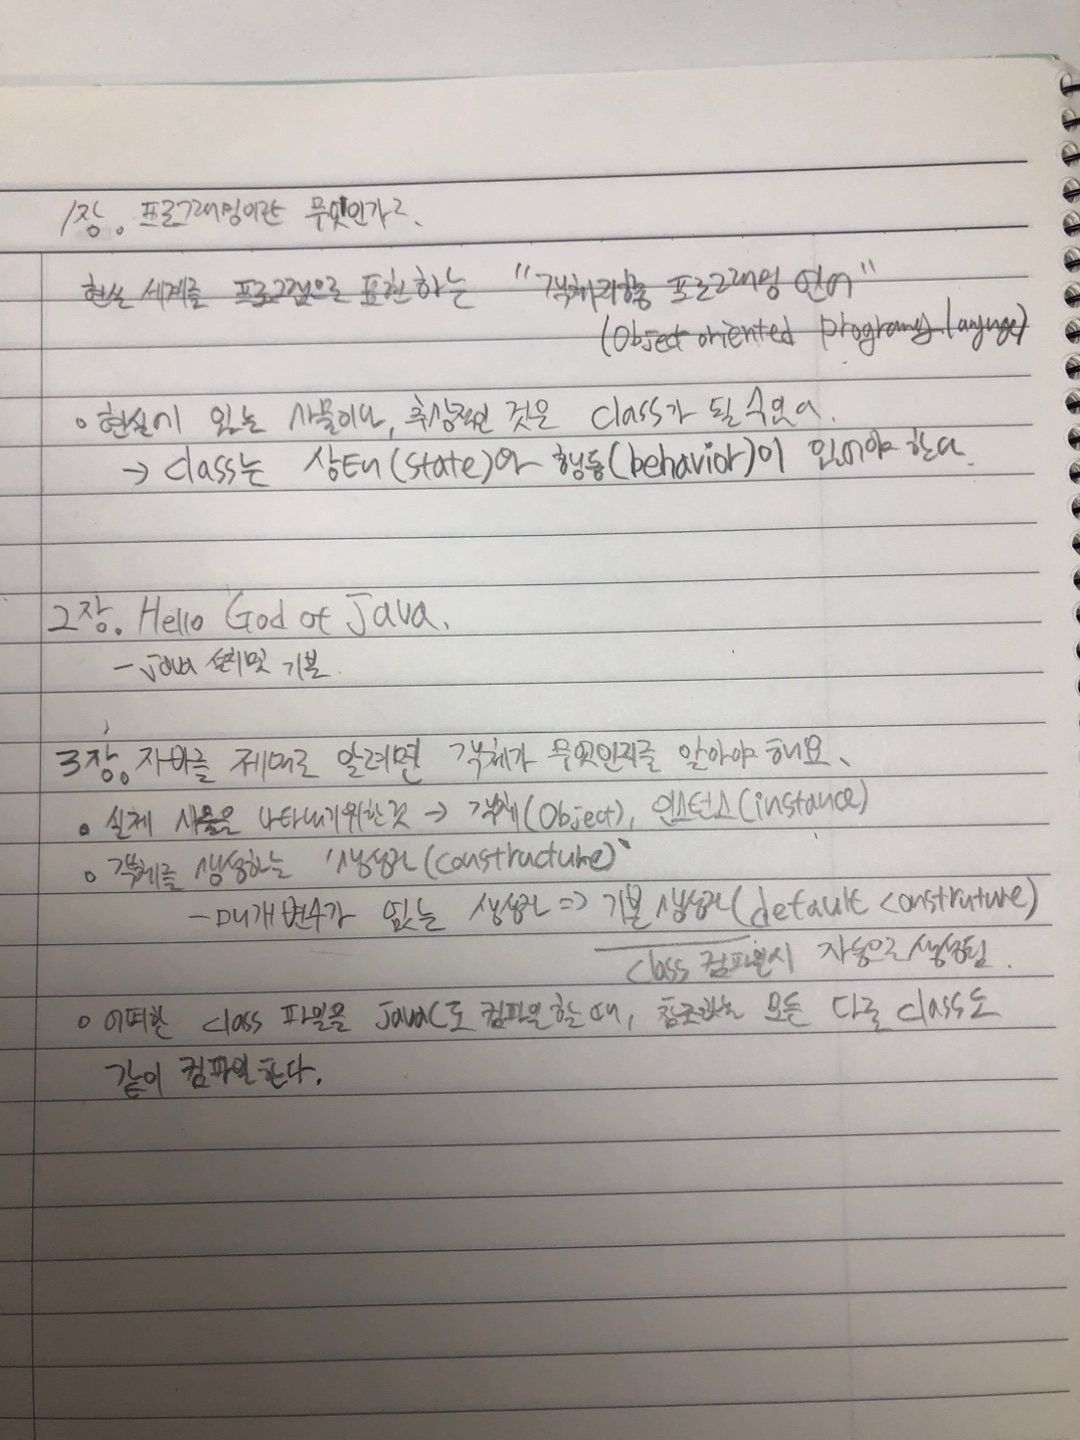 1장. 프로그래밍이란 무엇인가?
현실 세계를 프로그램으로 표현하는 "객체지향 프로그래밍 언어"
(Object oriented
• 현실에 있는 사물이나, 추상적인 것은 class가 될 수 있다.
→ class는 상태(state)와 행동(behavior)이 있어야 한다.
2장. Hello God of Java.
- java 설치 및 기본
3장. 자바를 제대로 알려면 객체가 무엇인지를 알아야 해요.
• 실제 사물을 나타내기 위한 것 → 객체(Object), 인스턴스(instance)
• 객체를 생성하는 '생성자(constructure)'
- 매개변수가 없는 생성자 => 기본 생성자(default construture)
class 컴파일시 자동으로 생성됨.
• 어떠한 class 파일을 javac로 컴파일할 때, 참조하는 모든 다른 class도
같이 컴파일한다.